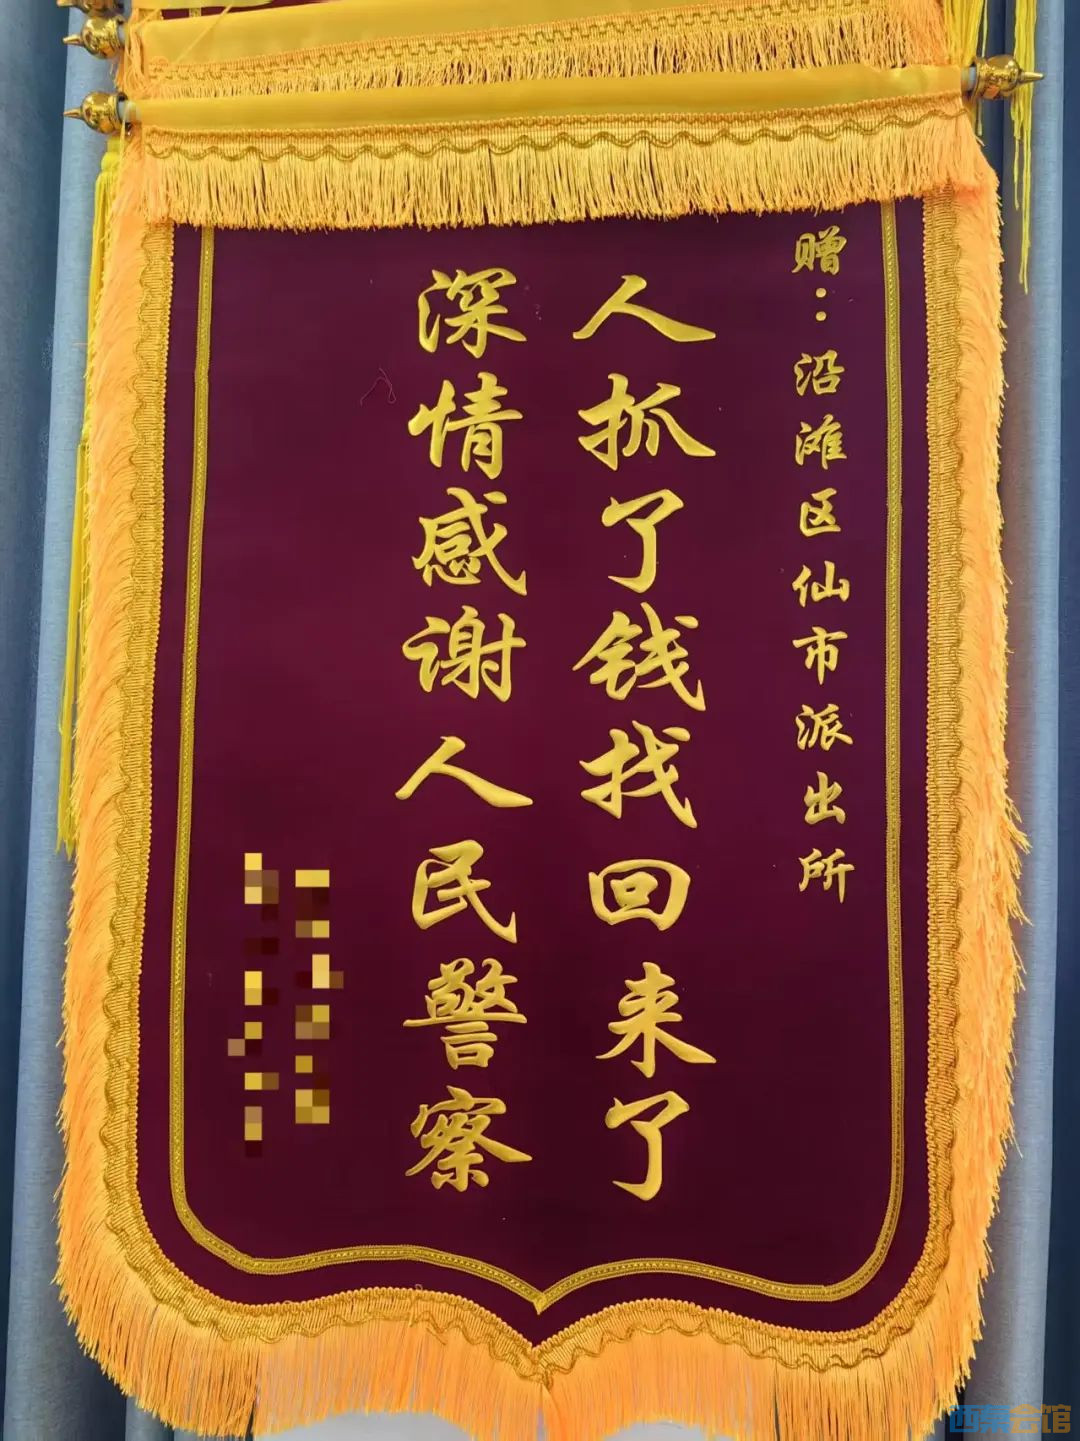 赠：沿滩区仙市派出所
人抓了钱找回来了
深情感谢人民警察
西秦会馆